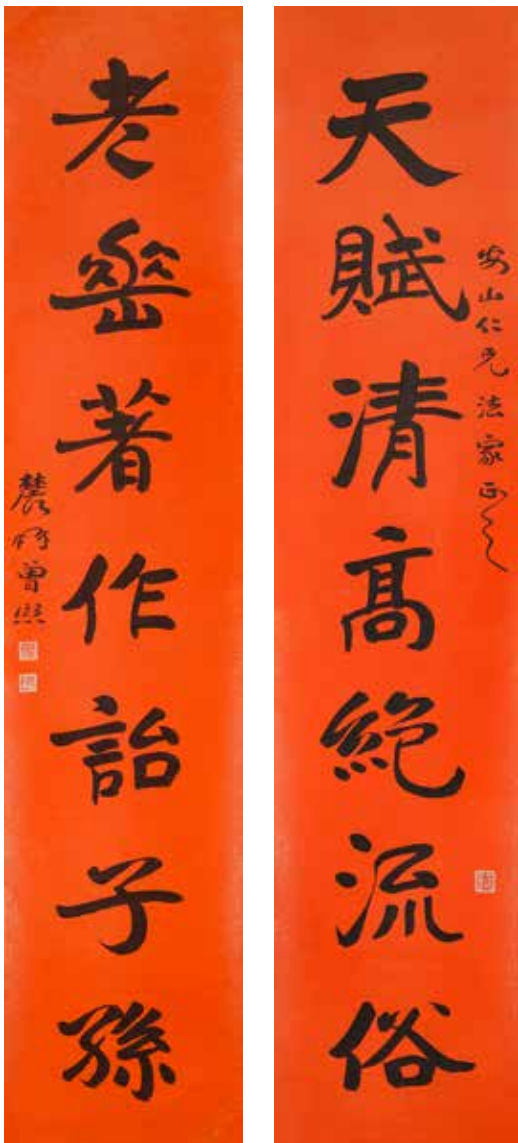 天賦清高絕流俗
安山仁兄法家正之
老密著作詒子孫
農髯曾熙